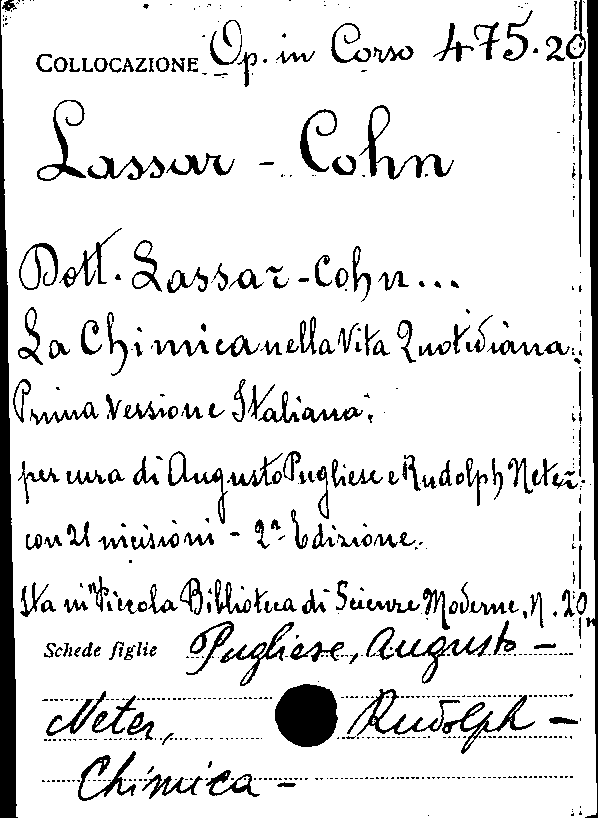 COLLOCAZIONE Op. in Corso 475.20
Lassar - Cohn
Dott. Lassar-Cohn...
La Chimica nella Vita Quotidiana.
Prima Versione Italiana.
per cura di Augusto Pugliese e Rudolph Neter
con 21 incisioni - 2ª Edizione.
Sta in "Piccola Biblioteca di Scienze Moderne, N. 20"
Schede figlie Pugliese, Augusto -
Neter, Rudolph -
Chimica -